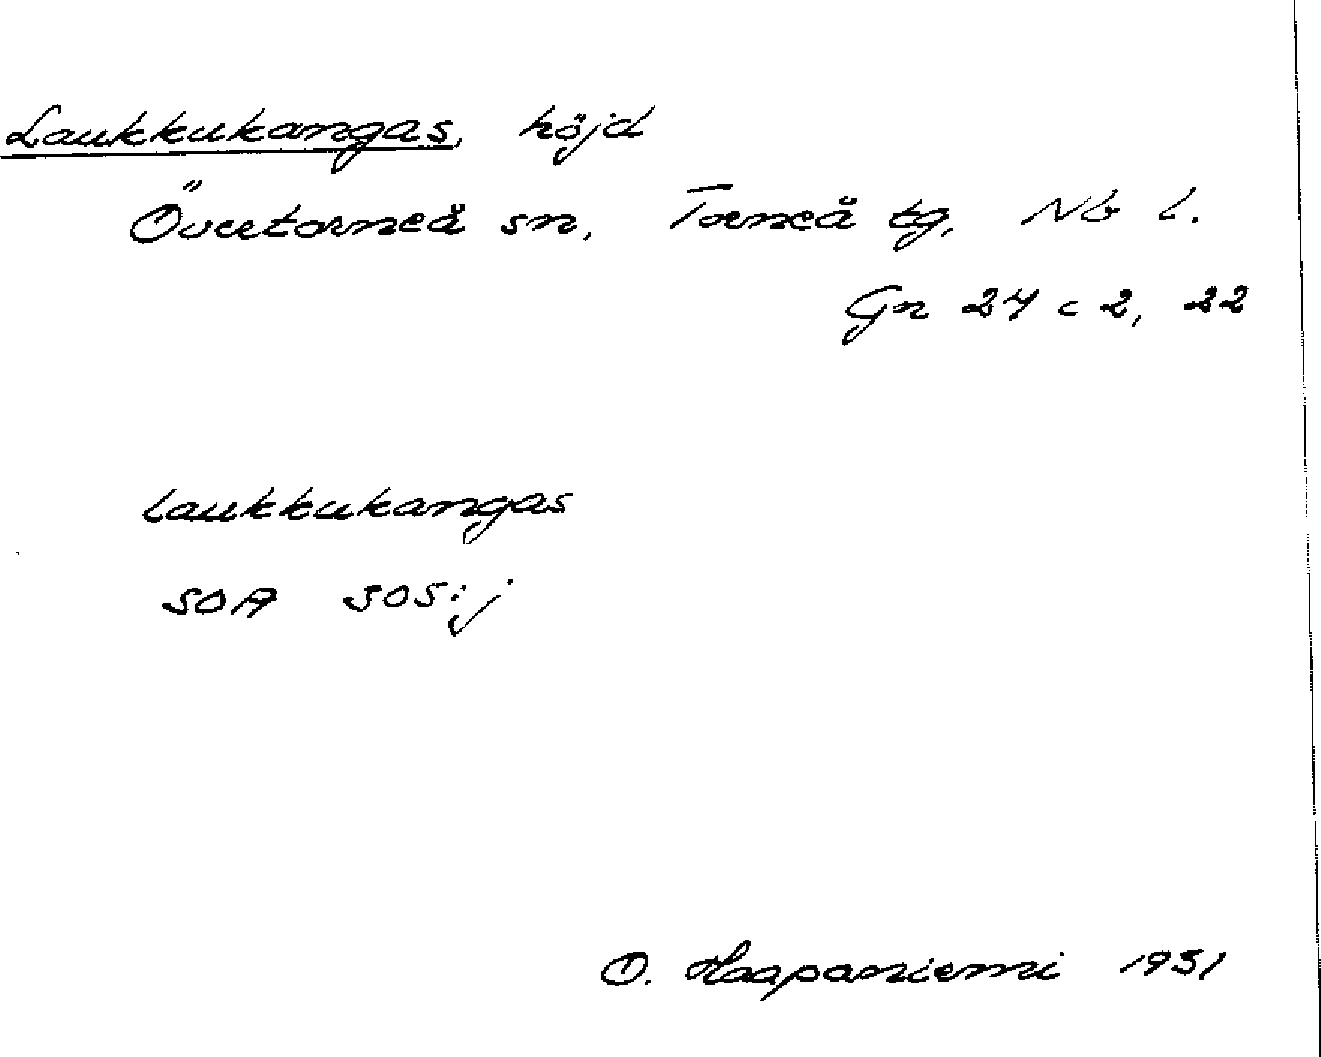 Laukkukangas, höjd
Övertorneå sn, Torneå tg, Nb l.
Gn 24 c 2, 22
Laukkukangas
SOA 305:j
O. Haapaniemi 1931